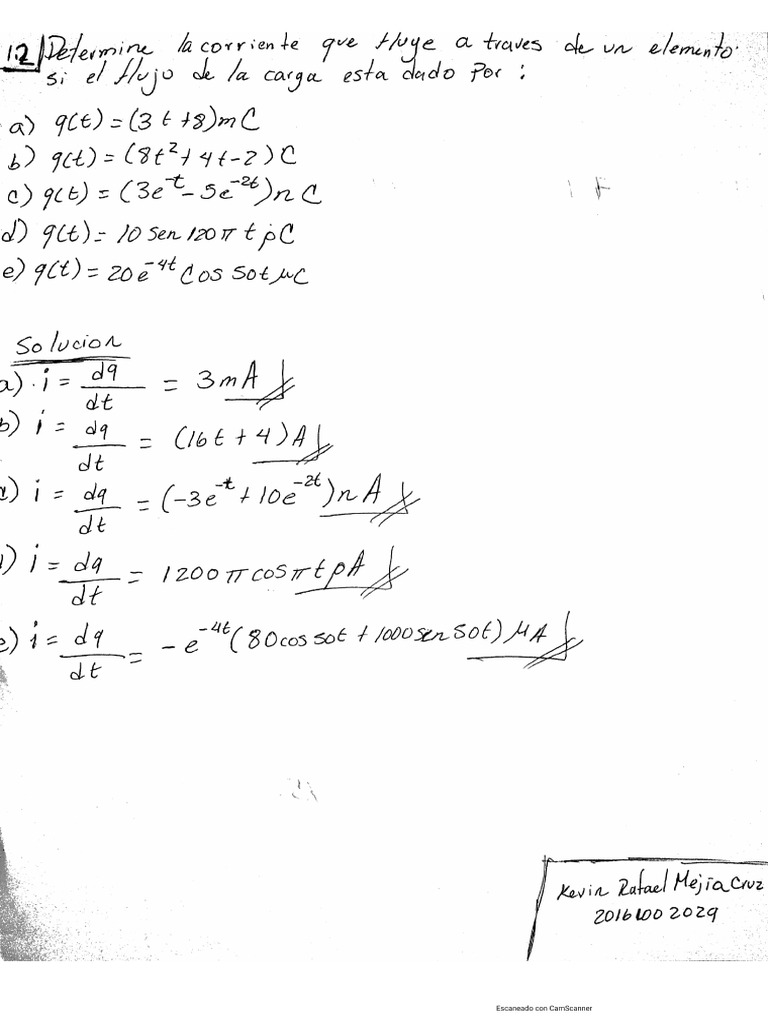 1.2 Determine la corriente que fluye a traves de un elemento
si el flujo de la carga esta dado por :
a) q(t) = (3t+8)mC
b) q(t) = (8t²+4t-2)C
c) q(t) = (3e^-t - 5e^-2t)nC
d) q(t) = 10 sen 120π t pC
e) q(t) = 20e^-4t Cos 50t μC
Solucion
a) i = dq/dt = 3mA
b) i = dq/dt = (16t + 4)A
) i = dq/dt = (-3e^-t + 10e^-2t)nA
) i = dq/dt = 1200π cosπt pA
e) i = dq/dt = -e^-4t (80cos50t + 1000sen50t) μA
Kevin Rafael Mejía Cruz
20161002029
Escaneado con CamScanner